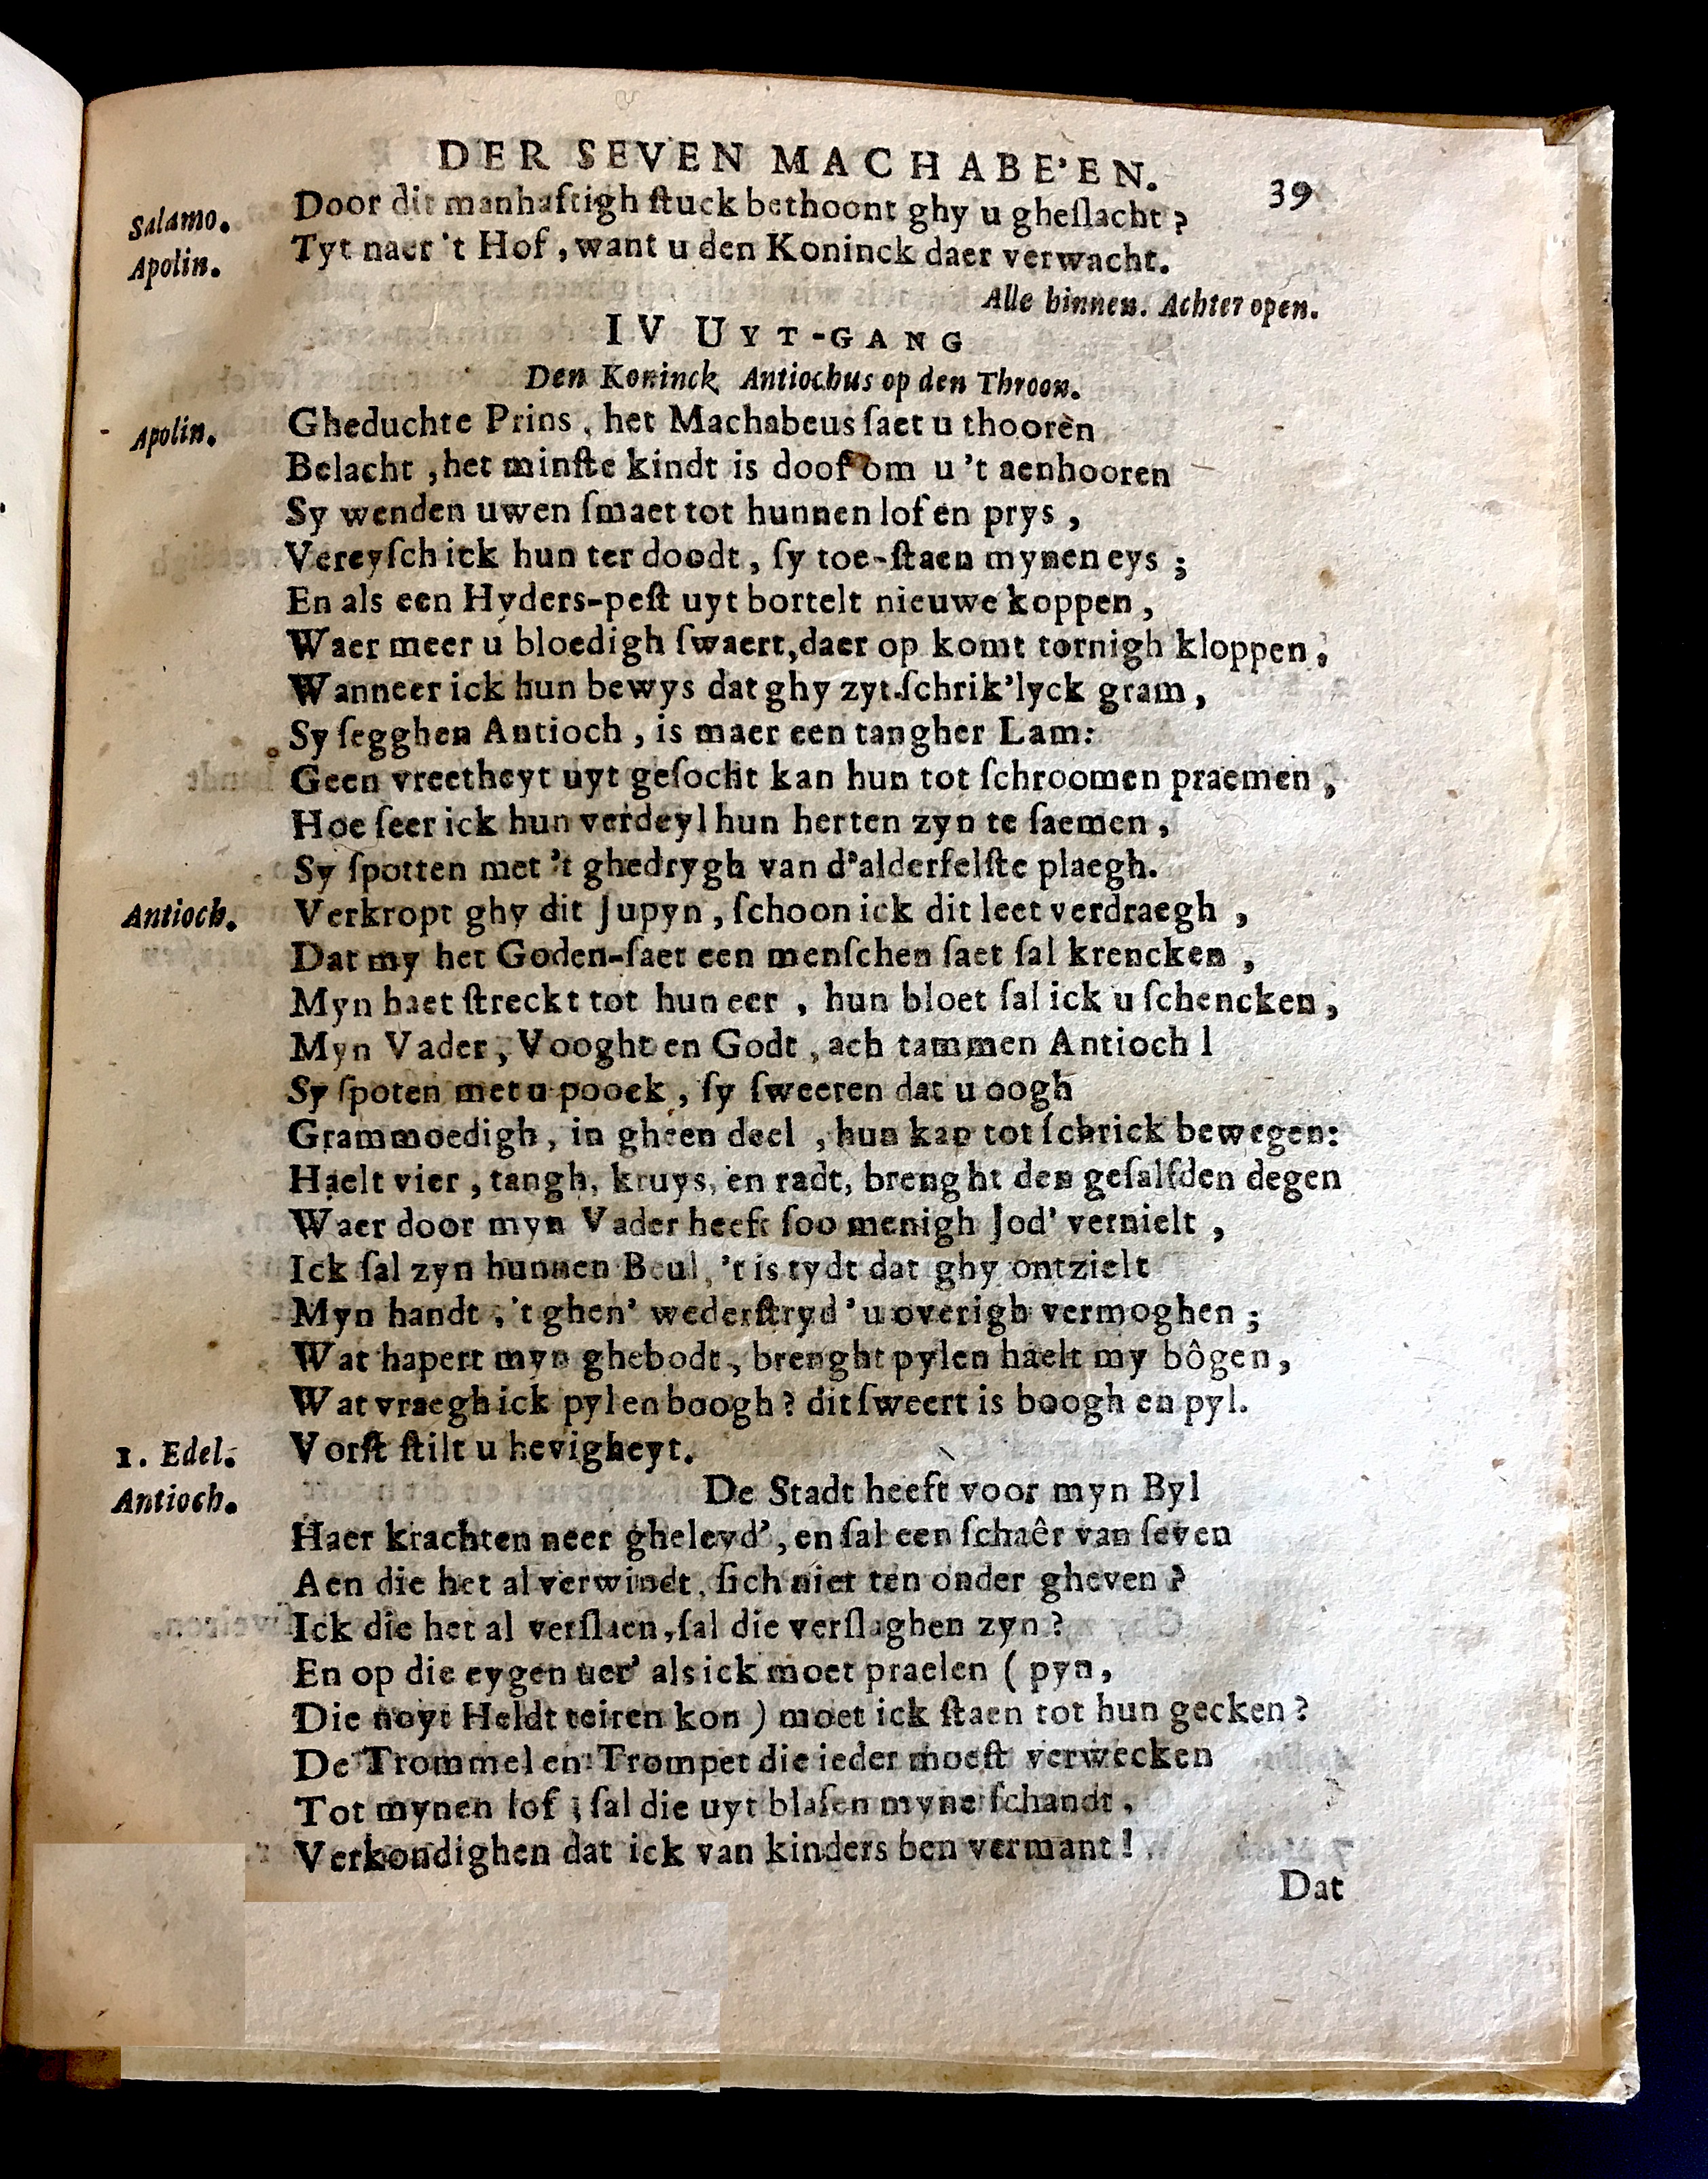 DER SEVEN MACHABE'EN. 39
Salamo. Door dit manhaftigh ſtuck bethoont ghy u gheſlacht?
Apolin. Tyt naer 't Hof, want u den Koninck daer verwacht.
Alle binnen. Achter open.
IV UYT-GANG
Den Koninck Antiochus op den Throon.
Apolin. Gheduchte Prins, het Machabeus ſaet u thoorèn
Belacht, het minſte kindt is doof om u 't aenhooren
Sy wenden uwen ſmaet tot hunnen lof en prys,
Vereyſch ick hun ter doodt, ſy toe-ſtaen mynen eys;
En als een Hyders-peſt uyt bortelt nieuwe koppen,
Waer meer u bloedigh ſwaert, daer op komt tornigh kloppen,
Wanneer ick hun bewys dat ghy zyt ſchrik'lyck gram,
Sy ſegghen Antioch, is maer een tangher Lam:
Geen vreetheyt uyt geſocht kan hun tot ſchroomen praemen,
Hoe ſeer ick hun verdeyl hun herten zyn te ſaemen,
Sy ſpotten met 't ghedrygh van d'alderfelſte plaegh.
Antioch. Verkropt ghy dit Jupyn, ſchoon ick dit leet verdraegh,
Dat my het Goden-ſaet een menſchen ſaet ſal krencken,
Myn haet ſtreckt tot hun eer, hun bloet ſal ick u ſchencken,
Myn Vader, Vooght en Godt, ach tammen Antioch l
Sy ſpoten met u poock, ſy ſweeren dat u oogh
Grammoedigh, in gheen deel, hun kan tot ſchrick bewegen:
Haelt vier, tangh, kruys, en radt, brenght den geſalfden degen
Waer door myn Vader heeft ſoo menigh Jod' vernielt,
Ick ſal zyn hunnen Beul, 't is tydt dat ghy ontzielt
Myn handt, 't ghen' wederſtryd' u overigh vermoghen;
Wat hapert myn ghebodt, brenght pylen haelt my bôgen,
Wat vraegh ick pyl en boogh? dit ſweert is boogh en pyl.
1. Edel. Vorſt ſtilt u hevigheyt.
Antioch. De Stadt heeft voor myn Byl
Haer krachten neer gheleyd', en ſal een ſchaêr van ſeven
Aen die het al verwindt, ſich niet ten onder gheven?
Ick die het al verſlaen, ſal die verſlaghen zyn?
En op die eygen uer' als ick moet praelen (pyn,
Die noyt Heldt teiren kon) moet ick ſtaen tot hun gecken?
De Trommel en Trompet die ieder moeſt verwecken
Tot mynen lof; ſal die uyt blaſen myne ſchandt,
Verkondighen dat ick van kinders ben vermant!
Dat